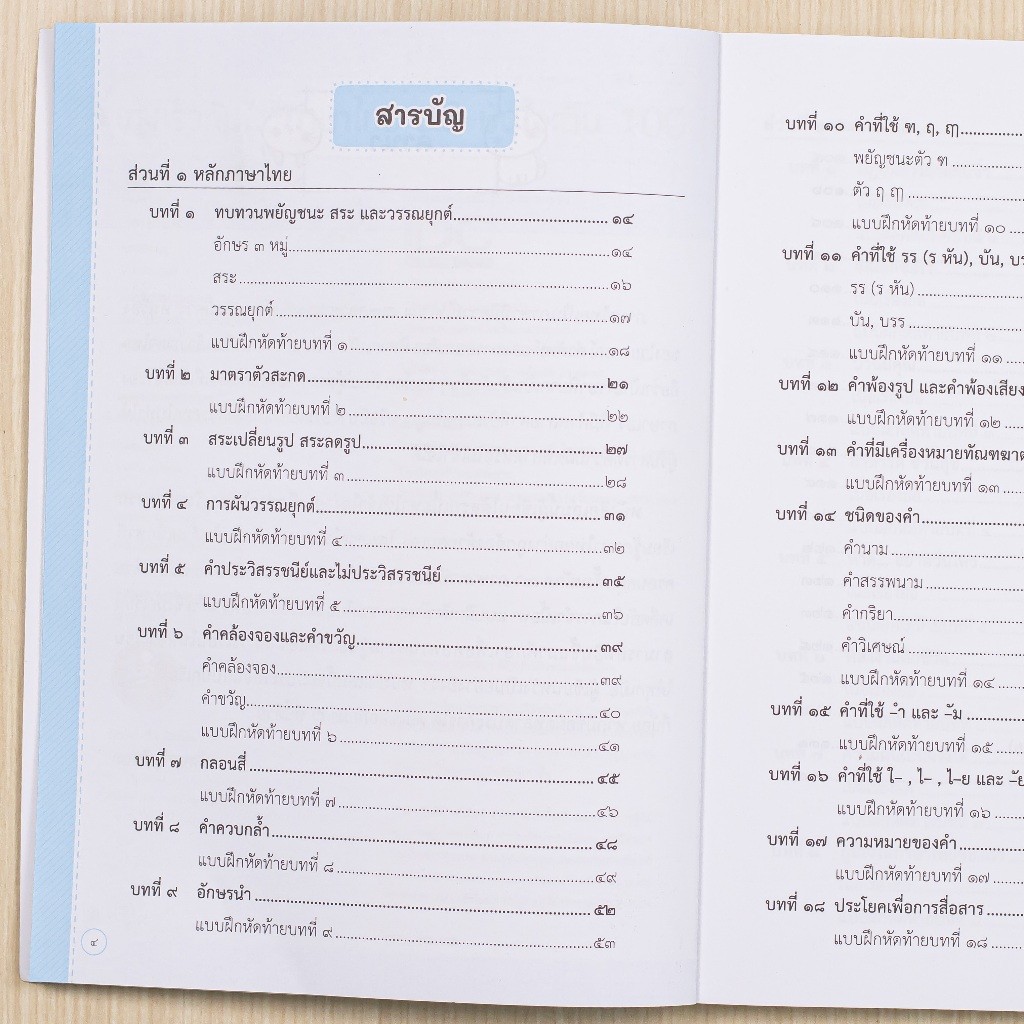 สารบัญ
ส่วนที่ ๑ หลักภาษาไทย
บทที่ ๑ ทบทวนพยัญชนะ สระ และวรรณยุกต์ ๑๔
อักษร ๓ หมู่ ๑๔
สระ ๑๖
วรรณยุกต์ ๑๗
แบบฝึกหัดท้ายบทที่ ๑ ๑๘
บทที่ ๒ มาตราตัวสะกด ๒๑
แบบฝึกหัดท้ายบทที่ ๒ ๒๒
บทที่ ๓ สระเปลี่ยนรูป สระลดรูป ๒๗
แบบฝึกหัดท้ายบทที่ ๓ ๒๘
บทที่ ๔ การผันวรรณยุกต์ ๓๑
แบบฝึกหัดท้ายบทที่ ๔ ๓๒
บทที่ ๕ คำประวิสรรชนีย์และไม่ประวิสรรชนีย์ ๓๕
แบบฝึกหัดท้ายบทที่ ๕ ๓๖
บทที่ ๖ คำคล้องจองและคำขวัญ ๓๙
คำคล้องจอง ๓๙
คำขวัญ ๔๐
แบบฝึกหัดท้ายบทที่ ๖ ๔๑
บทที่ ๗ กลอนสี่ ๔๕
แบบฝึกหัดท้ายบทที่ ๗ ๔๖
บทที่ ๘ คำควบกล้ำ ๔๘
แบบฝึกหัดท้ายบทที่ ๘ ๔๙
บทที่ ๙ อักษรนำ ๕๒
แบบฝึกหัดท้ายบทที่ ๙ ๕๓
๔
บทที่ ๑๐ คำที่ใช้ ฑ, ฤ, ฤๅ
พยัญชนะตัว ฑ
ตัว ฤ ฤๅ
แบบฝึกหัดท้ายบทที่ ๑๐
บทที่ ๑๑ คำที่ใช้ รร (ร หัน), บัน,
รร (ร หัน)
บัน, บรร
แบบฝึกหัดท้ายบทที่ ๑๑
บทที่ ๑๒ คำพ้องรูป และคำพ้องเสียง
แบบฝึกหัดท้ายบทที่ ๑๒
บทที่ ๑๓ คำที่มีเครื่องหมายทัณฑฆาต
แบบฝึกหัดท้ายบทที่ ๑๓
บทที่ ๑๔ ชนิดของคำ
คำนาม
คำสรรพนาม
คำกริยา
คำวิเศษณ์
แบบฝึกหัดท้ายบทที่ ๑๔
บทที่ ๑๕ คำที่ใช้ –ำ และ –ัม
แบบฝึกหัดท้ายบทที่ ๑๕
บทที่ ๑๖ คำที่ใช้ ใ– , ไ– , ไ–ย และ –ัย
แบบฝึกหัดท้ายบทที่ ๑๖
บทที่ ๑๗ ความหมายของคำ
แบบฝึกหัดท้ายบทที่ ๑๗
บทที่ ๑๘ ประโยคเพื่อการสื่อสาร
แบบฝึกหัดท้ายบทที่ ๑๘